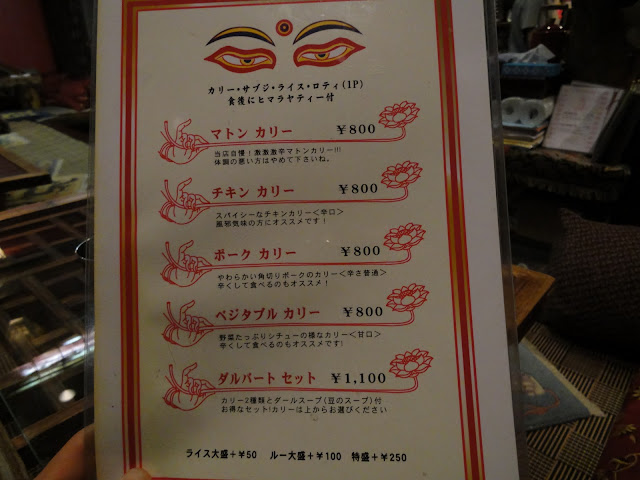 カリー・サブジ・ライス・ロティ(1P)
食後にヒマラヤティー付
マトン カリー ￥800
当店自慢！激激激辛マトンカリー!!!
体調の悪い方はやめて下さいね。
チキン カリー ￥800
スパイシーなチキンカリー＜辛口＞
風邪気味の方にオススメです！
ポーク カリー ￥800
やわらかい角切りポークのカリー＜辛さ普通＞
辛くして食べるのもオススメ！
ベジタブル カリー ￥800
野菜たっぷりシチューの様なカリー＜甘口＞
辛くして食べるのもオススメです!
ダルバート セット ￥1,100
カリー2種類とダールスープ(豆のスープ)付
お得なセット!カリーは上からお選びください
ライス大盛＋￥50 ルー大盛＋￥100 特盛＋￥250